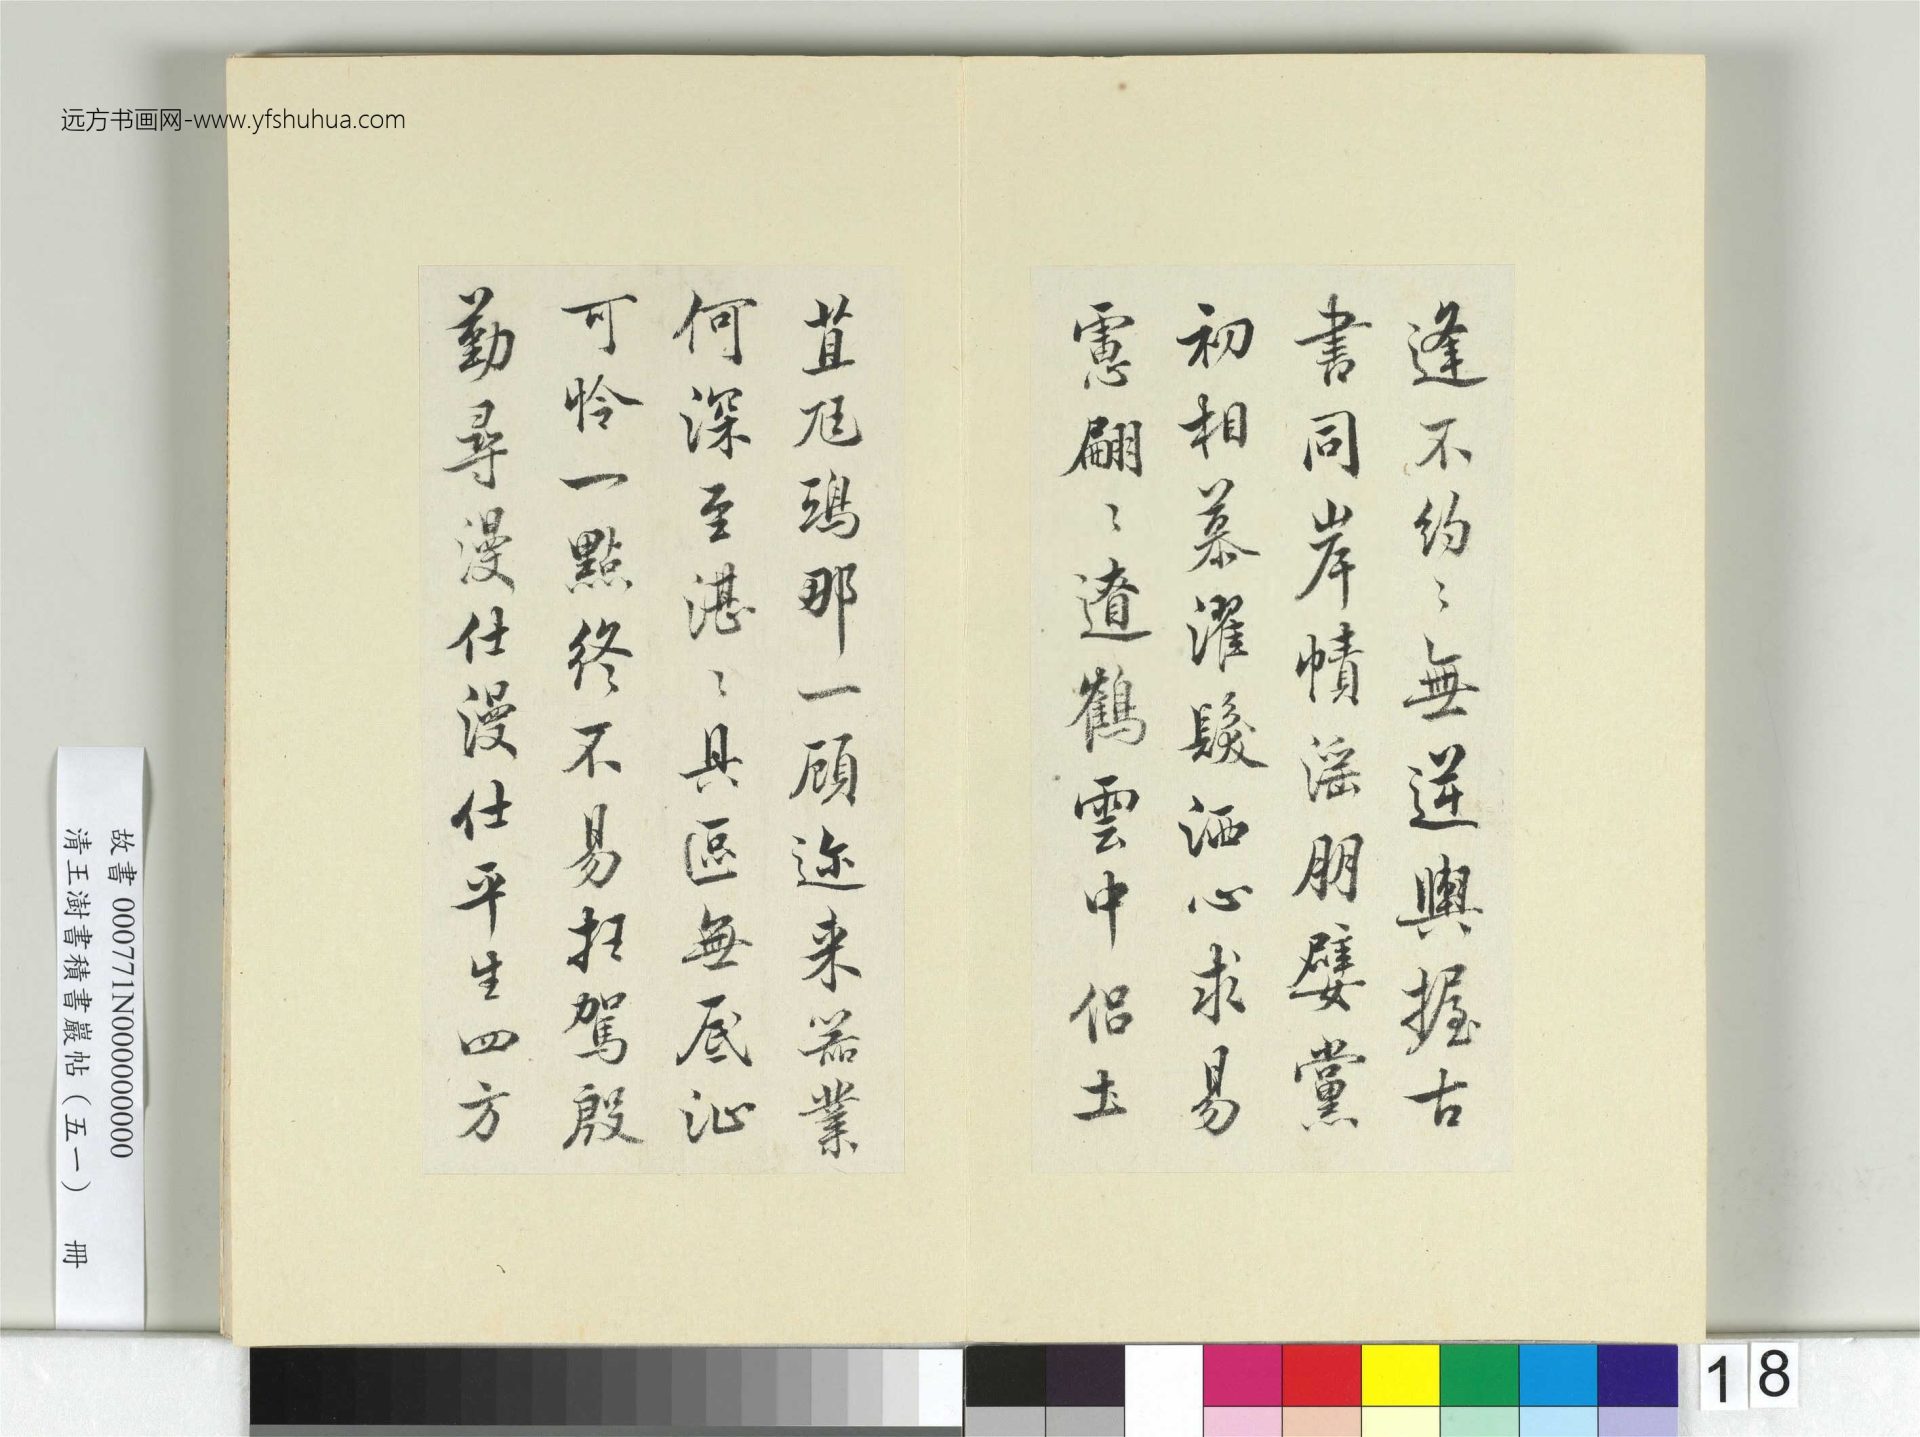 远方书画网-www.yfshuhua.com
逢不約〻無逆輿握古
書同岸幘滛朋嬖黨
初相慕濯髮洒心求易
慮翩〻遼鶴雲中侣土
苴尫鵶那一顧迩来器業
何深至湛〻具區無底沚
可怜一點終不易枉駕殷
勤尋漫仕漫仕平生四方
故書 000771N000000000
清王澍書積書巖帖(五一) 冊
18